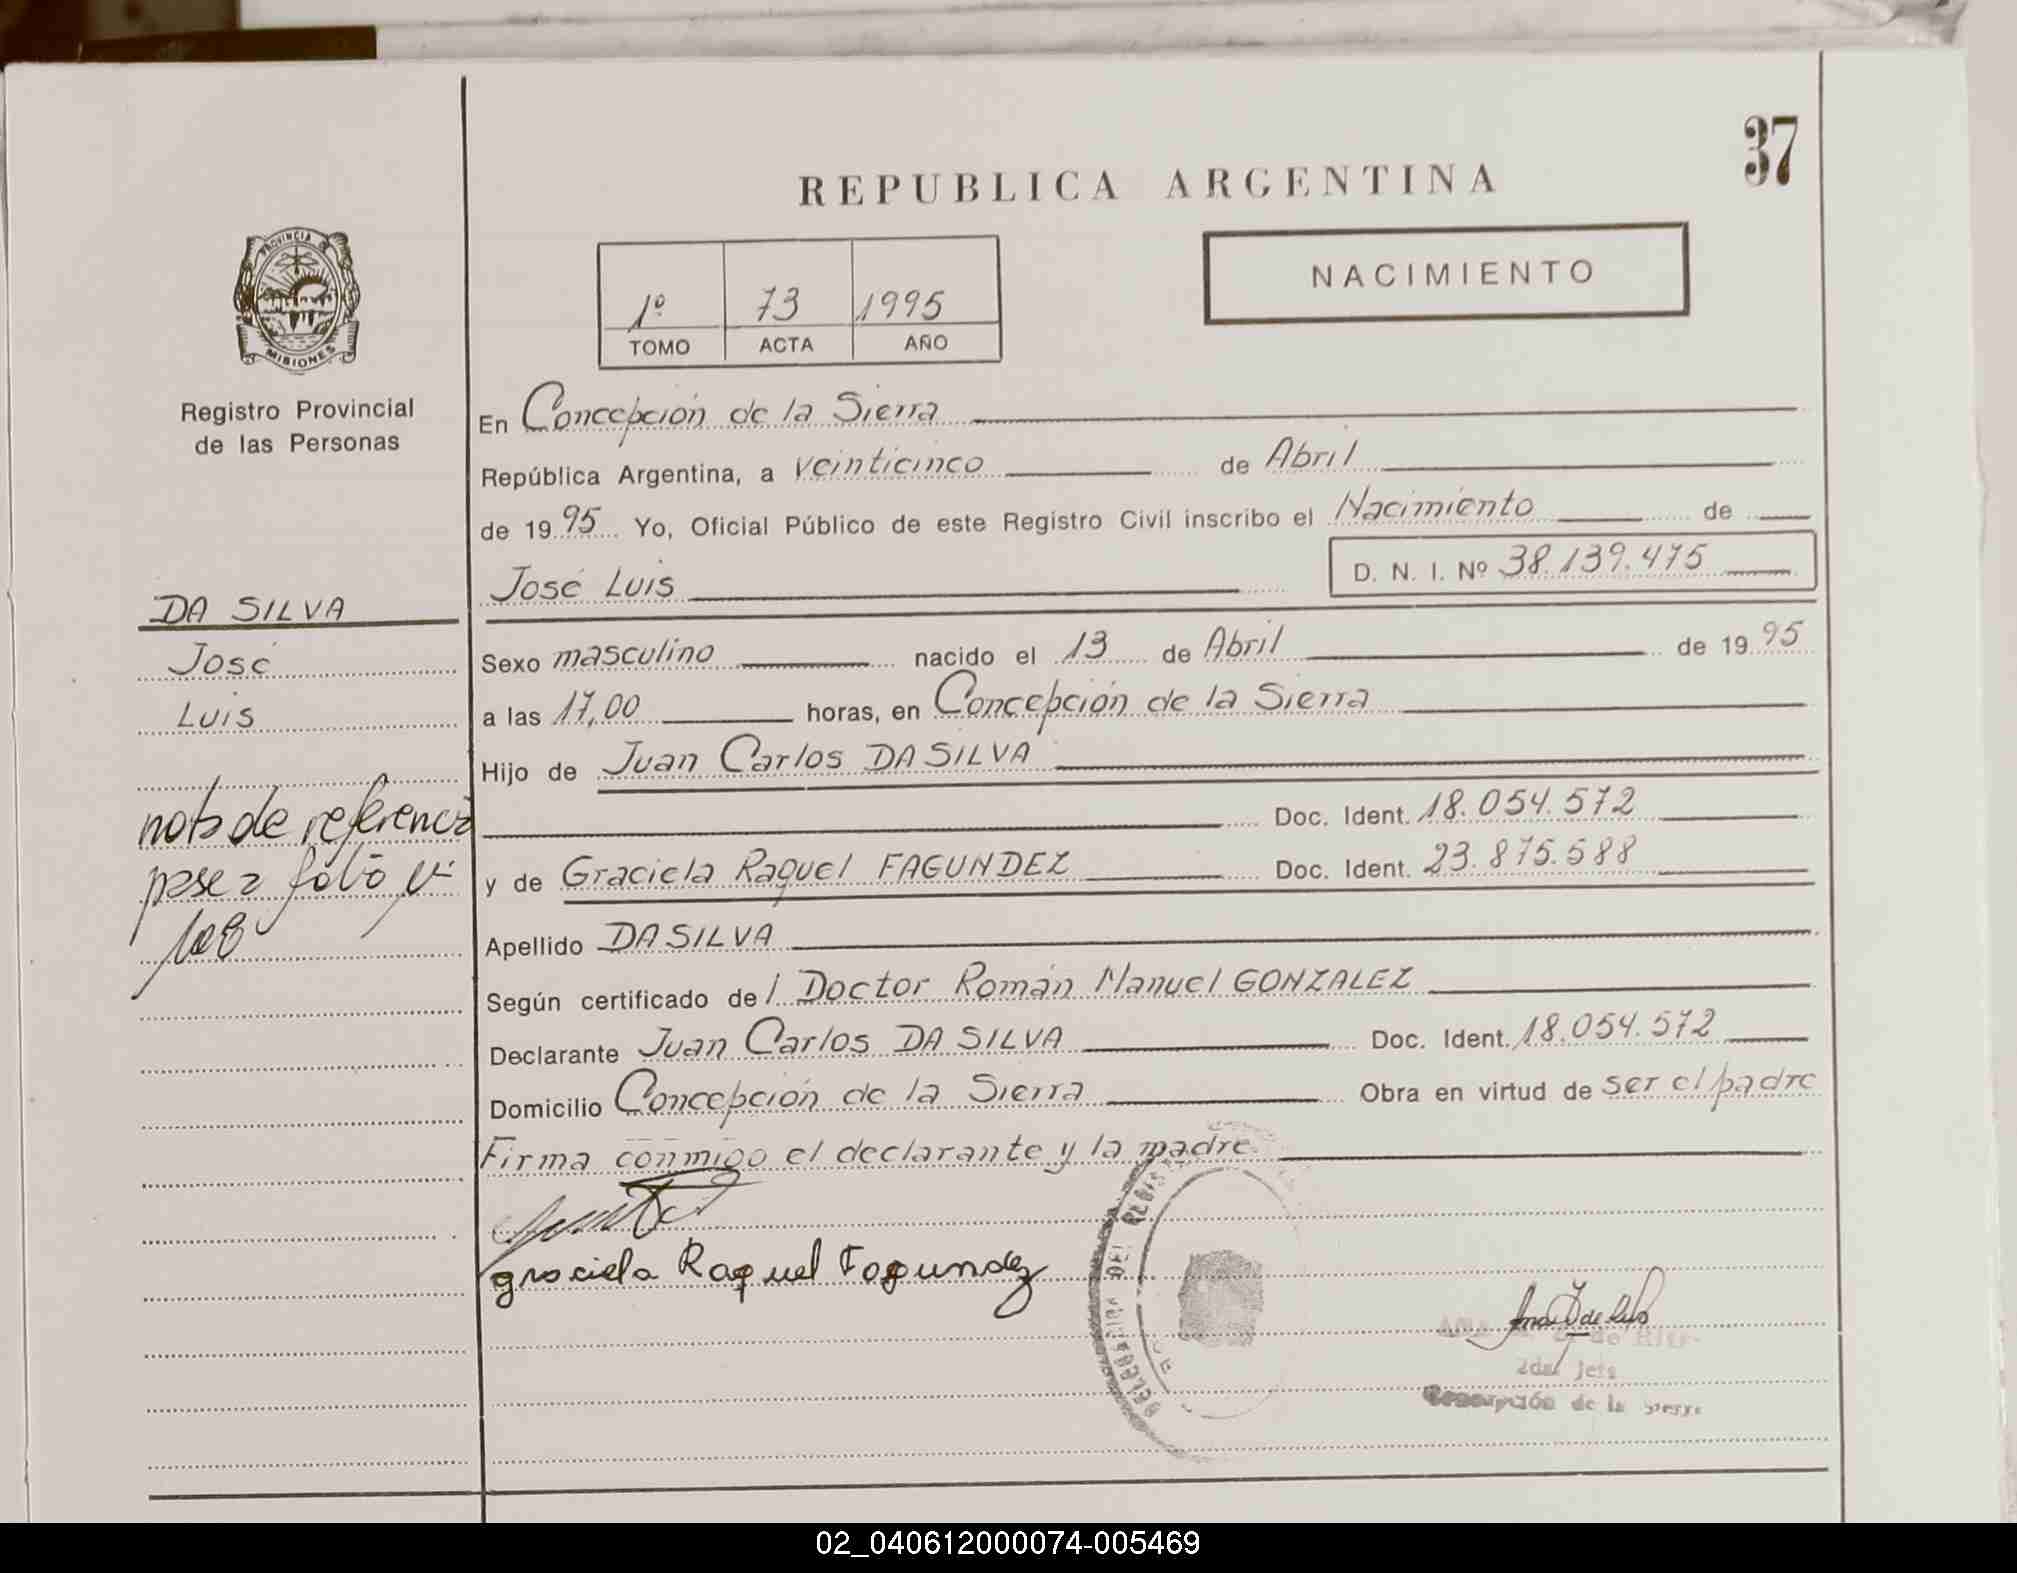 37
REPUBLICA ARGENTINA
NACIMIENTO
1º 73 1995
TOMO ACTA AÑO
PROVINCIA DE
MISIONES
Registro Provincial
de las Personas
En Concepción de la Sierra
República Argentina, a veinticinco de Abril
de 1995 Yo, Oficial Público de este Registro Civil inscribo el Nacimiento de
José Luis D. N. I. Nº 38.139.475
DA SILVA
José
Luis
nota de referencia
pase a folio Nº
108
Sexo masculino nacido el 13 de Abril de 1995
a las 17,00 horas, en Concepción de la Sierra
Hijo de Juan Carlos DA SILVA
Doc. Ident. 18.054.572
y de Graciela Raquel FAGUNDEZ Doc. Ident. 23.875.588
Apellido DA SILVA
Según certificado del Doctor Román Manuel GONZALEZ
Declarante Juan Carlos DA SILVA Doc. Ident. 18.054.572
Domicilio Concepción de la Sierra Obra en virtud de ser el padre
Firma conmigo el declarante y la madre.
graciela Raquel Fagundez
DEL
2da Jefe
Concepción de la Sierra
02_040612000074-005469